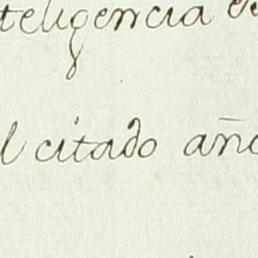 teligencia de
l citado año